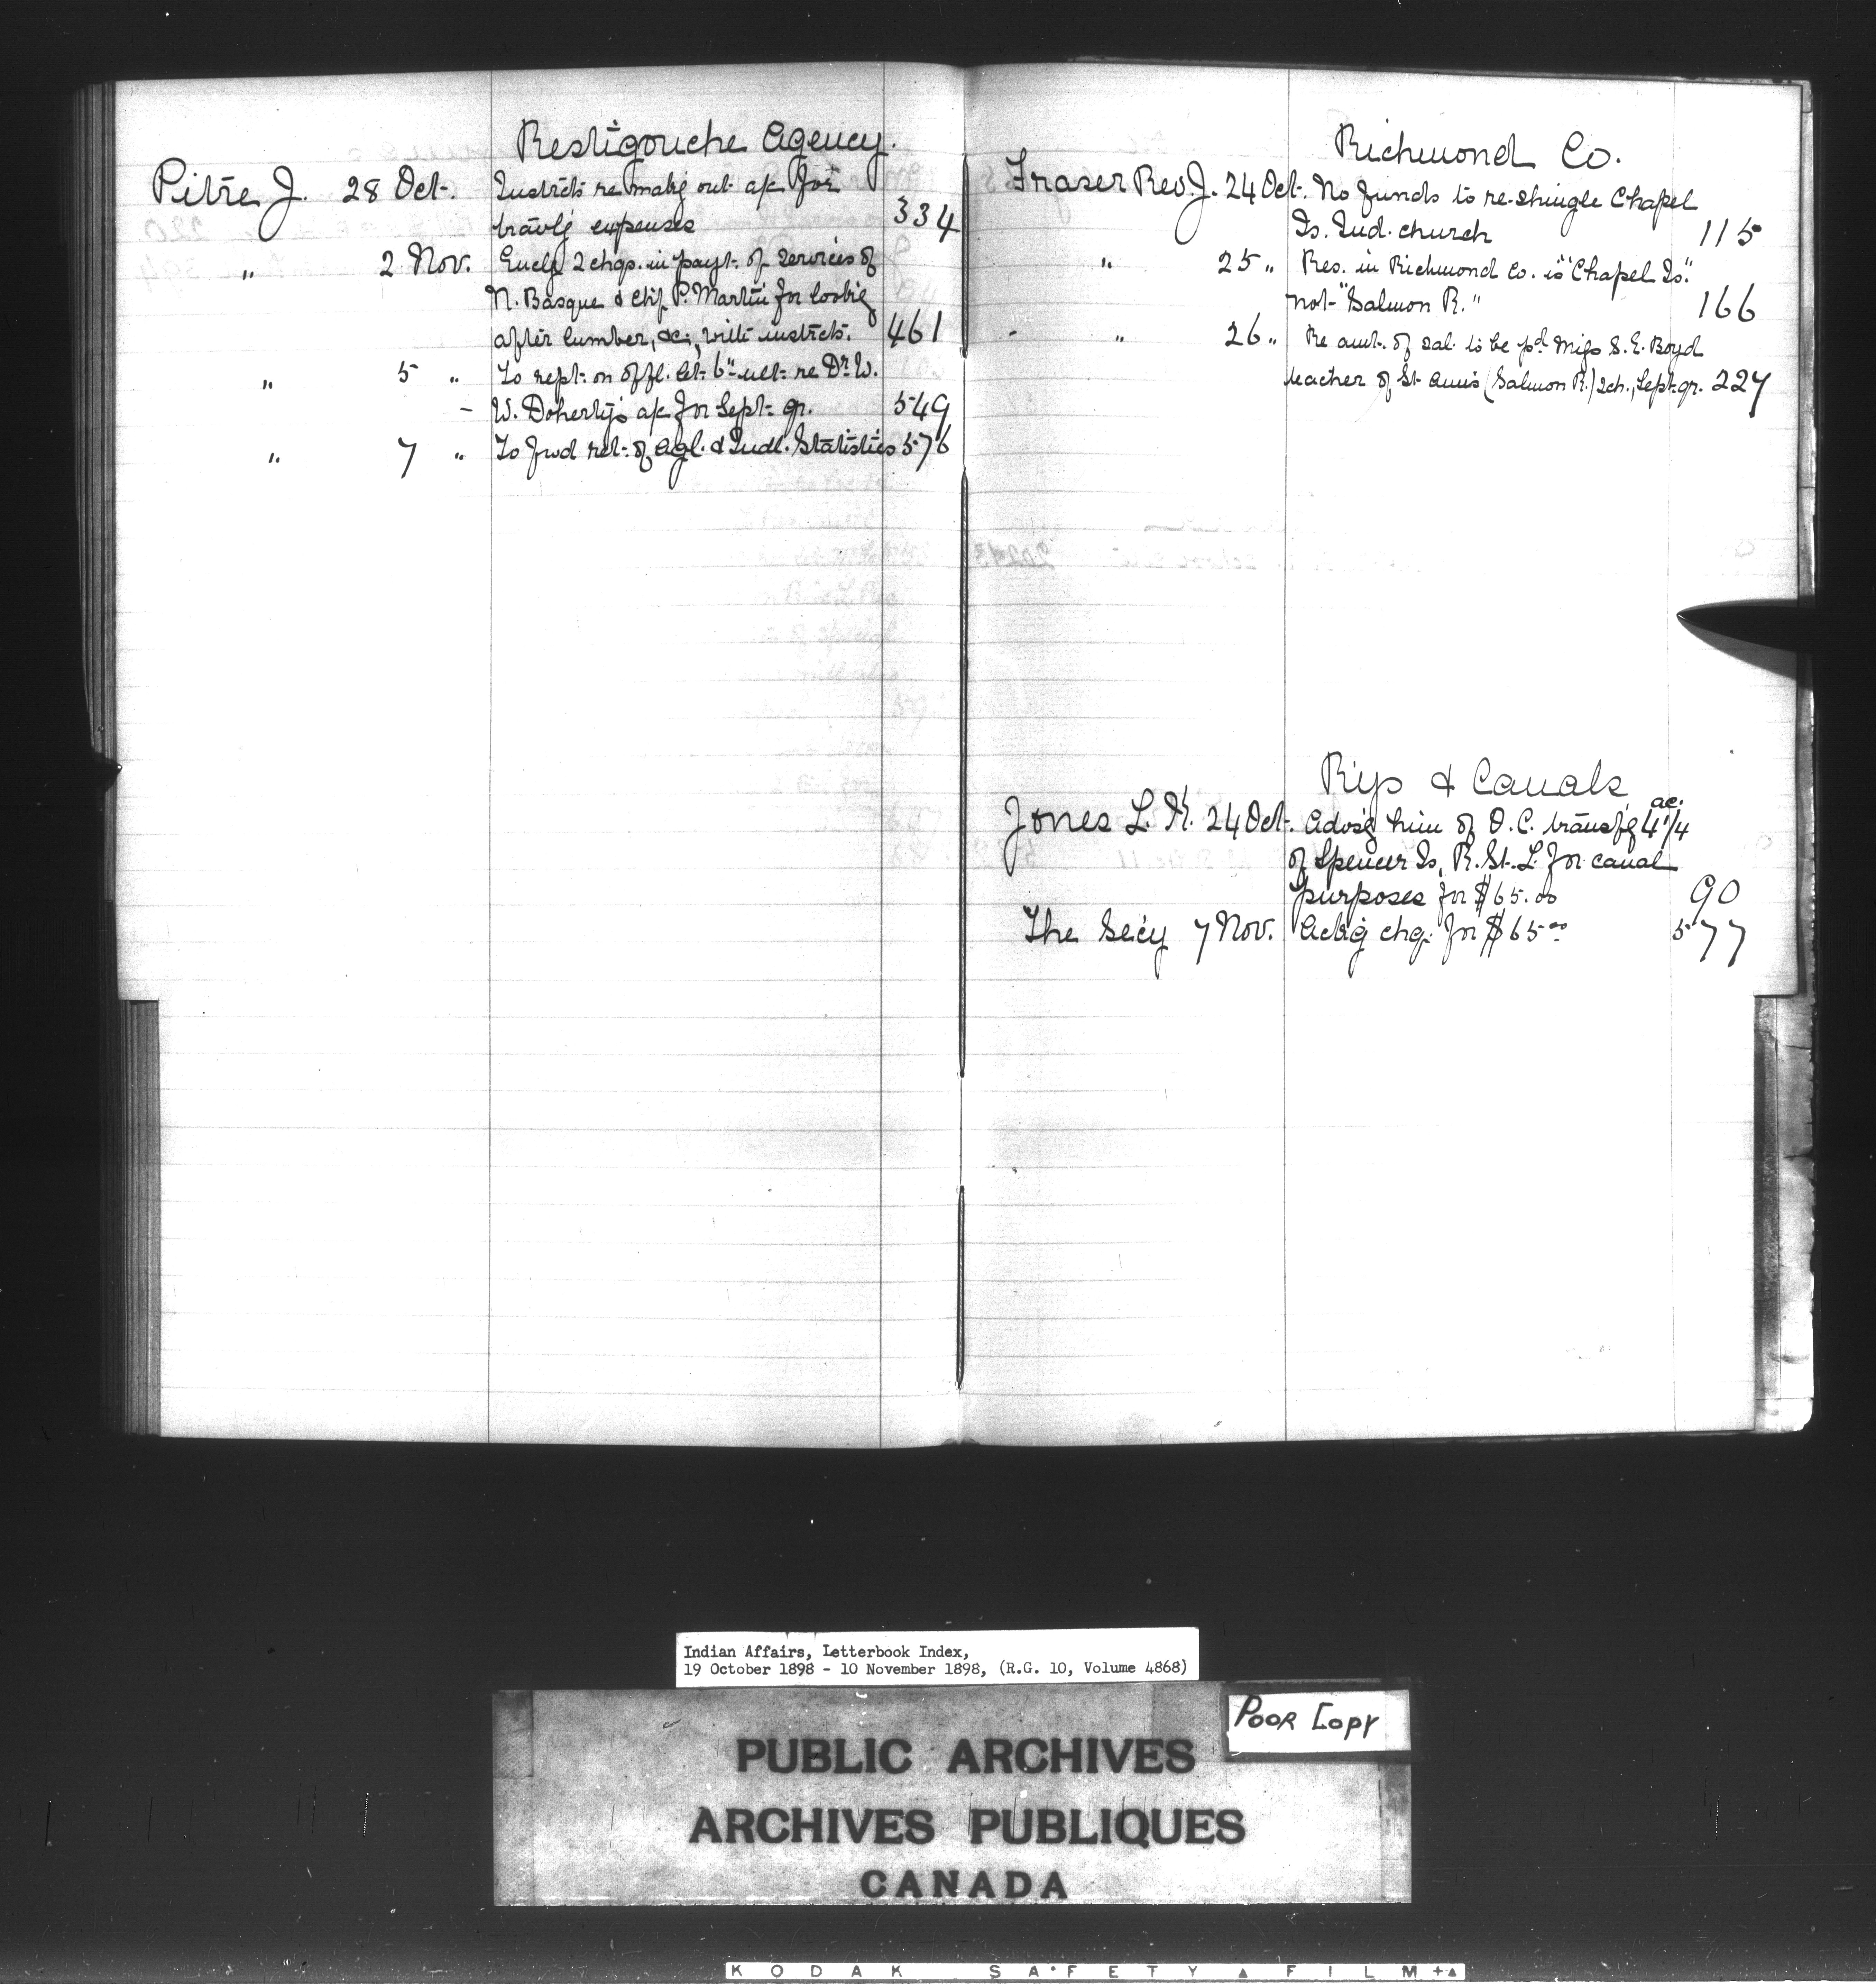 Restigouche Agency.
Pitre J. 28 Oct. Instrcts re makg out a/c for
travlg expenses 334
" 2 Nov. Enclg 2 chqs. in payt. of services of
N. Basque & Chf. P. Martin for lookg
after lumber, &c., with instrcts. 461
" 5 " To rept. on offl. let. 6" ult. re Dr. W.
W. Doherty's a/c for Sept. qr. 549
" 7 " To fwd ret. of Agl. & Indl. Statistics 576
Richmond Co.
Fraser Rev. J. 24 Oct. No funds to re-shingle Chapel
Is. Ind. church 115
" 25 " Res. in Richmond Co. is "Chapel Is."
not "Salmon R." 166
" 26 " Re amt. of sal. to be pd. Miss S. E. Boyd
teacher of St. Ann's (Salmon R.) sch., Sept. qr. 227
Rys & Canals
Jones L. K. 24 Oct. Advsg him of O.C. transfg 4 1/4 ac.
of Spencer Is, R. St. L. for canal
purposes for $65.00 90
The Sec'y 7 Nov. Ackg chq. for $65.00 577
Indian Affairs, Letterbook Index,
19 October 1898 - 10 November 1898, (R.G. 10, Volume 4868)
POOR COPY
PUBLIC ARCHIVES
ARCHIVES PUBLIQUES
CANADA
KODAK SAFETY FILM